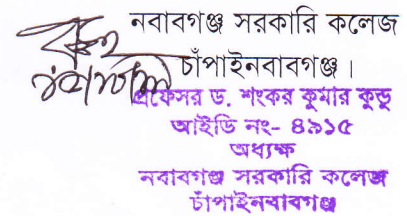 নবাবগঞ্জ সরকারি কলেজ
চাঁপাইনবাবগঞ্জ।
প্রফেসর ড. শংকর কুমার কুন্ডু
আইডি নং- ৪৯১৫
অধ্যক্ষ
নবাবগঞ্জ সরকারি কলেজ
চাঁপাইনবাবগঞ্জ